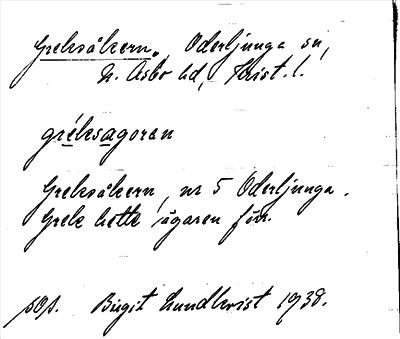 Greksåkern. Oderljunga sn,
N. Åsbo hd, Krist. l.
gréksagoran
Greksåkern, nr 5 Oderljunga.
Grek hette ägaren förr.
pop. Birgit Lundkvist 1938.